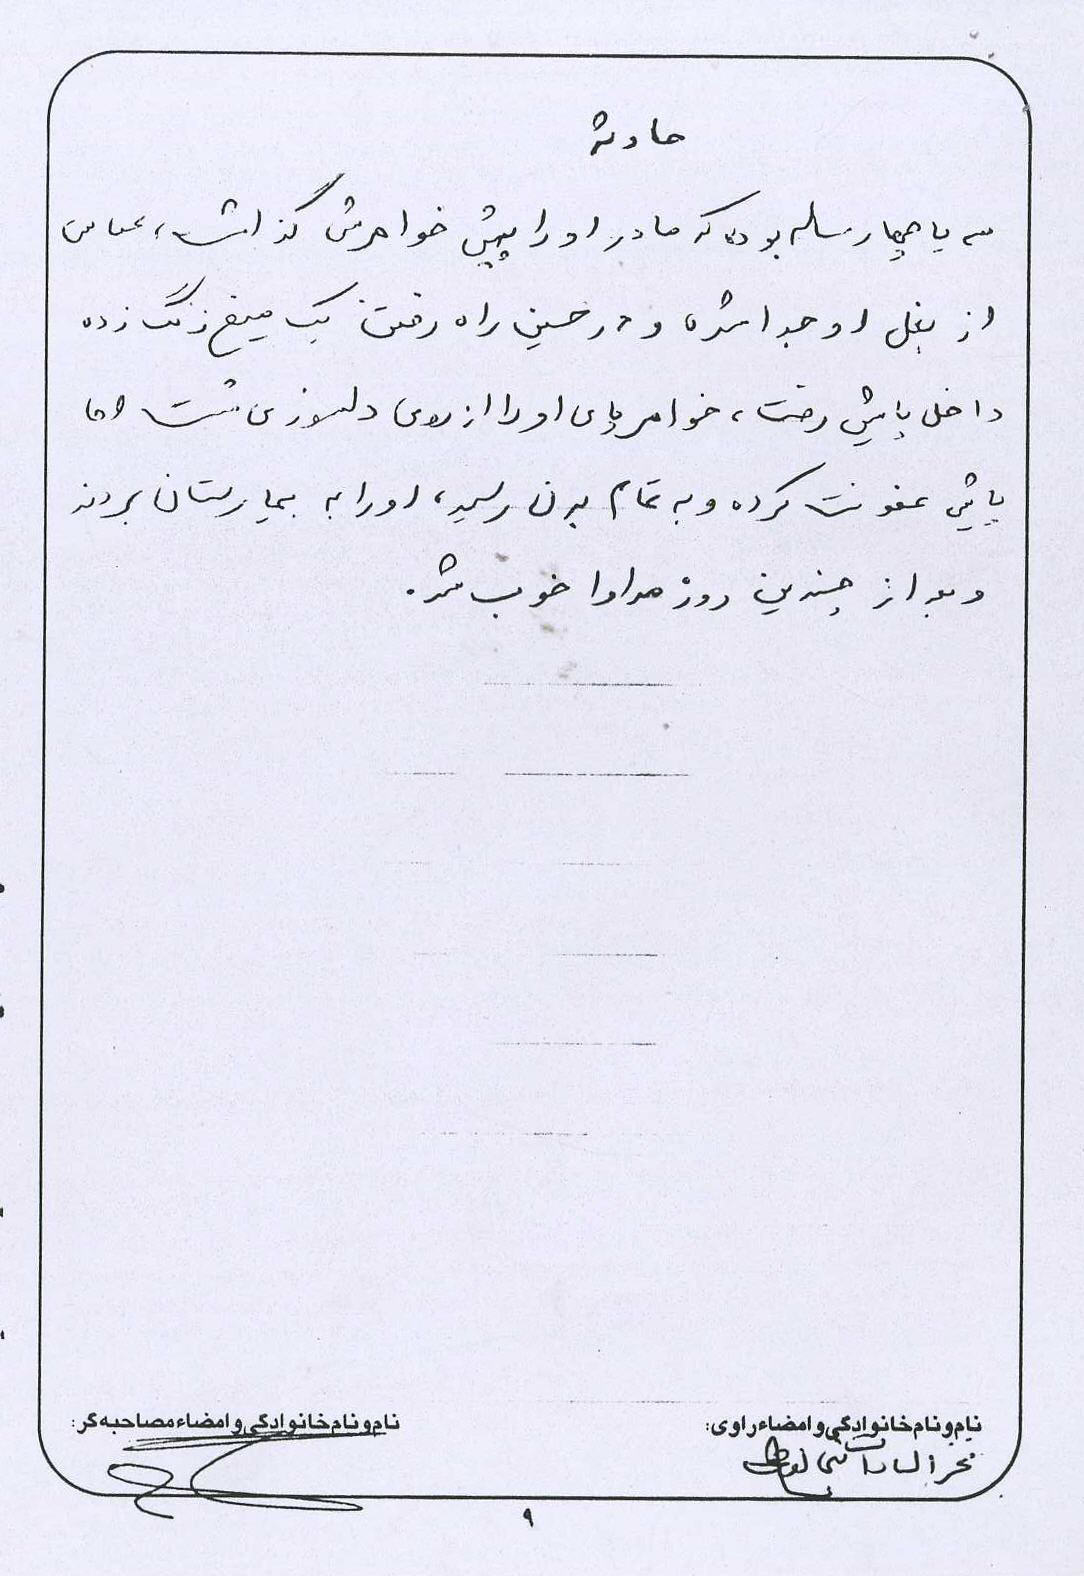 حادثه
سه یا چهار ساله بوده که مادر او را پیش خواهرش گذاشت، عباس
از بغل او جدا شده و در حین راه رفتن یک میخ زنگ زده
داخل پایش رفت، خواهر پای او را از روی دلسوزی شست اما
پایش عفونت کرده و به تمام بدن رسید، او را به بیمارستان بردند
و بعد از چندین روز مداوا خوب شد.
نام و نام خانوادگی و امضاء راوی:
نام و نام خانوادگی و امضاء مصاحبه گر:
السادات
۹